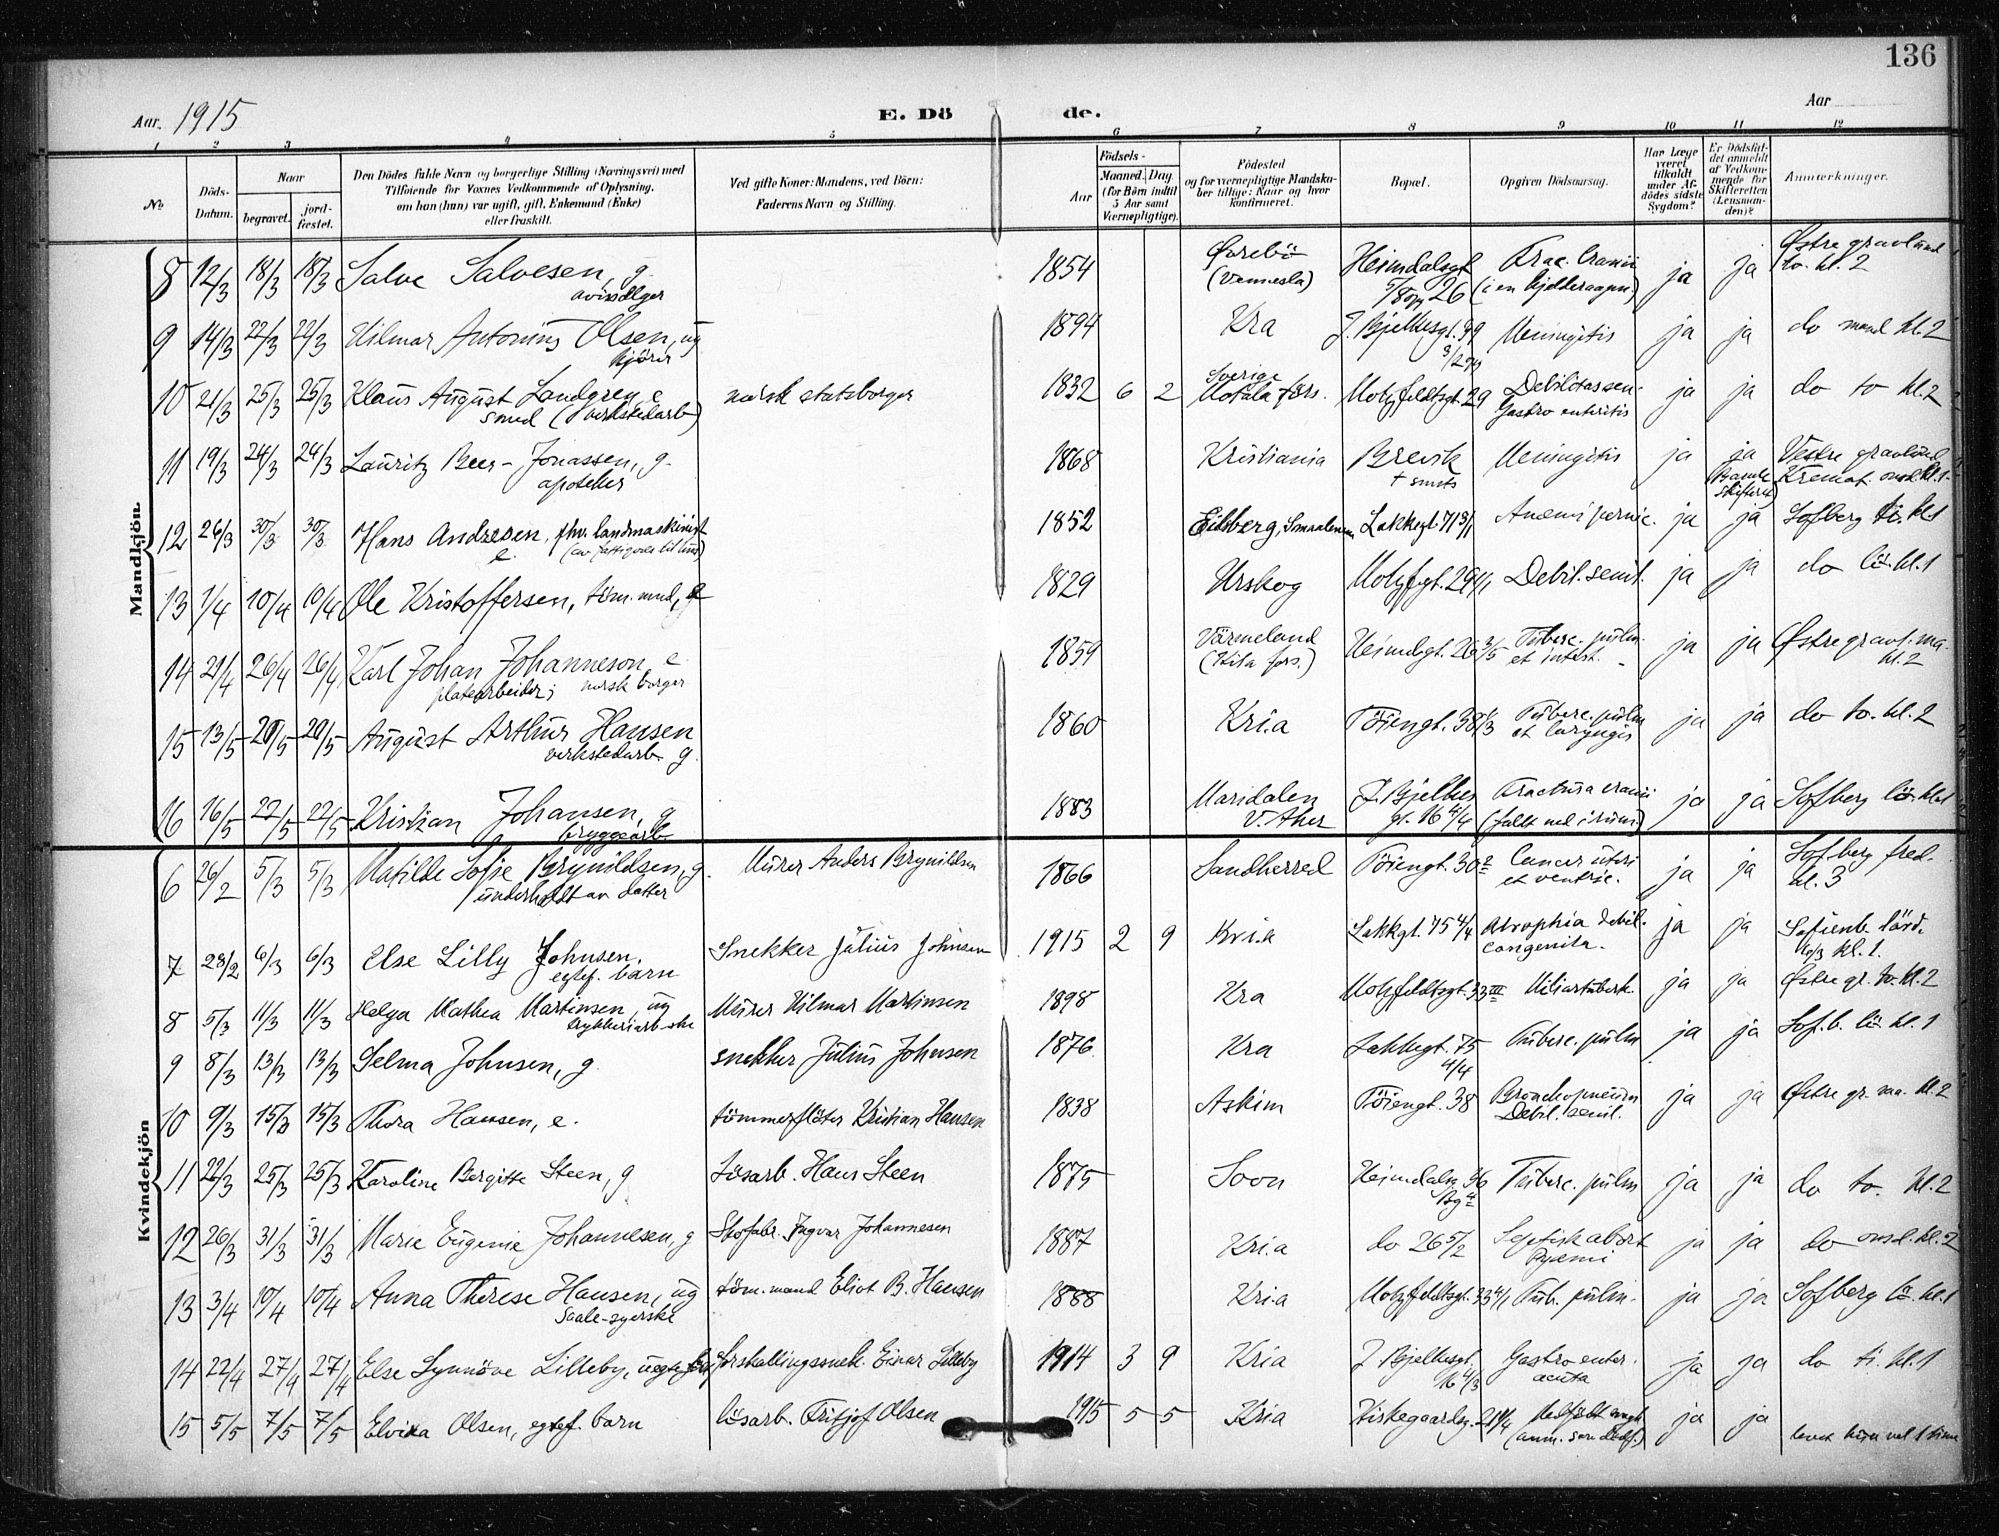 136
Aar. 1915
E. Dö de.
Aar
1 2 3 4 5 6 7 8 9 10 11 12
No
Döds-Datum.
Naar
begravet. jord-fæstet.
Den Dödes fulde Navn og borgerlige Stilling (Næringsvei) med
Tilföiende for Voxnes Vedkommende af Oplysning.
om han (hun) var ugift, gift, Enkemand (Enke)
eller fraskilt.
Ved gifte Koner: Mandens, ved Börn:
Faderens Navn og Stilling.
Födsels-
Aar Maaned. Dag.
(for Börn indtil
5 Aar samt
Værnepligtige).
Födested
og for værnepligtige Mandska-
ber tillige: Naar og hvor
konfirmeret.
Bopæl.
Opgiven Dödsaarsag.
Har Læge
været
tilkaldt
under Af-
dödes sidste
Sygdom?
Er Dödsfal-
det anmeldt
af Vedkom-
mende for
Skifteretten
(Lensman-
den)?
Anmærkninger.
Mandkjön.
8 12/3 18/3 18/3 Salve Salvesen, g. 1854 Øvrebö Heimdalsgt Frac. cranii ja ja Østre gravlund
avissælger (Vennesla) 26 (i en kjelderaapn.) to. kl. 2
9 14/3 22/3 22/3 Hilmar Antonius Olsen, ug 1894 Kra J. Bjelkesgt. 99 Meningitis ja ja do kl. 2
kjörer
10 21/3 25/3 25/3 Klaus August Landgren, e norsk statsborger 1832 6 2 Sverige Motala förs. Motzfeldtsgt. 29 Debilitas sen. ja ja do to kl. 2
smed (verkstedarb) Gastro enteritis
11 19/3 24/3 24/3 Lauritz Beer-Jonassen, g. 1868 Kristiania Brevik Meningitis ja ja Vestre gravlund
apoteker Bamle skifteret Kremat. kl. 1.
12 26/3 30/3 30/3 Hans Andresen, fhv. landmaskinist 1852 Eidsberg, Smaalenene Lakkegt. 71 3/1 Anemi pernic. ja ja Sofberg ti. kl. 1
e.
13 1/4 10/4 10/4 Ole Kristoffersen, töm. mnd, e 1829 Urskog Motzfgt. 29 Debil. senil. ja ja do lö. kl. 1
14 21/4 26/4 26/4 Karl Johan Johanneson, e 1859 Värmeland Heimdgt. 26 3/5 Tuberc. pulm. ja ja Østre gravl. ma.
platearbeider; norsk borger et intest. kl. 2
15 13/5 20/5 20/5 August Arthur Hansen 1860 Kria Töiengt. 38 1/3 Tuberc. pulm ja ja do to. kl. 2
verkstedarb g. et laryngis
16 16/5 22/5 22/5 Kristian Johansen, g 1883 Maridalen J. Bjelkes Fractura cranii ja ja Sofberg lö. kl. 1
bryggearb V. Aker gt. 16 4/4 (faldt ned i rum.)
Kvindekjön
6 26/2 5/3 5/3 Matilde Sofie Brynildsen, g. Murer Anders Brynildsen 1866 Sandherred Töiengt. 30 2 Cancer uteri ja ja Sofberg fred.
underholdt av datter et ventric. kl. 3
7 28/2 6/3 6/3 Else Lilly Johnsen. Snekker Julius Johnsen 1915 2 9 Kria Lakkgt. 75 4/4 Atrophia debil. ja ja Sofienb. lörd.
egtef. barn congenita. kl. 1.
8 5/3 11/3 11/3 Helga Mathea Martinsen, ug Murer Hilmar Martinsen 1898 Kra Motzfeldtsgt. 33 III Miliartuberk. ja ja Østre gr. to. kl. 2
trykkeriarb-ske
9 8/3 13/3 13/3 Selma Johnsen, g. snekker Julius Johnsen 1876 Kra Lakkegt. 75 4/4 Tuberc. pulm ja ja Sof.b. lö. kl. 1
10 9/3 15/3 15/3 Thora Hansen, e. tömmerflöter Kristian Hansen 1838 Askim Töiengt. 38 Bronchopneum ja ja Østre gr. ma. kl. 2
Debil. senil.
11 22/3 25/3 25/3 Karoline Bergitte Steen, g lösarb. Hans Steen 1875 Soon Heimdalsg. Tuberc. pulm ja ja do to. kl. 2
12 26/3 31/3 31/3 Marie Eugenie Johannesen, g Skofabr. Ingvar Johannesen 1887 Kria do 26 5/2 Septisk abort ja ja do onsd. kl. 2
Pyæmi
13 3/4 10/4 10/4 Anna Therese Hansen, ug töm. mand Eliot B. Hansen 1888 Kria Motzfeldtsgt. 33 4/1 Tub. pulm. ja ja Sofberg lö. kl. 1
Saale-syerske
14 22/4 27/4 27/4 Else Synnöve Lilleby, forskallingssnek. Einar Lilleby 1914 3 9 Kria J. Bjelkesgt. 16 4/3 Gastro enter. ja ja do ti. kl. 1
acuta
15 5/5 7/5 7/5 Elvira Olsen, egtef. barn lösarb. Fritjof Olsen 1915 5 5 Kria Kirkegaardsg. Medfödt svagh ja ja
(anm. som dödf.)